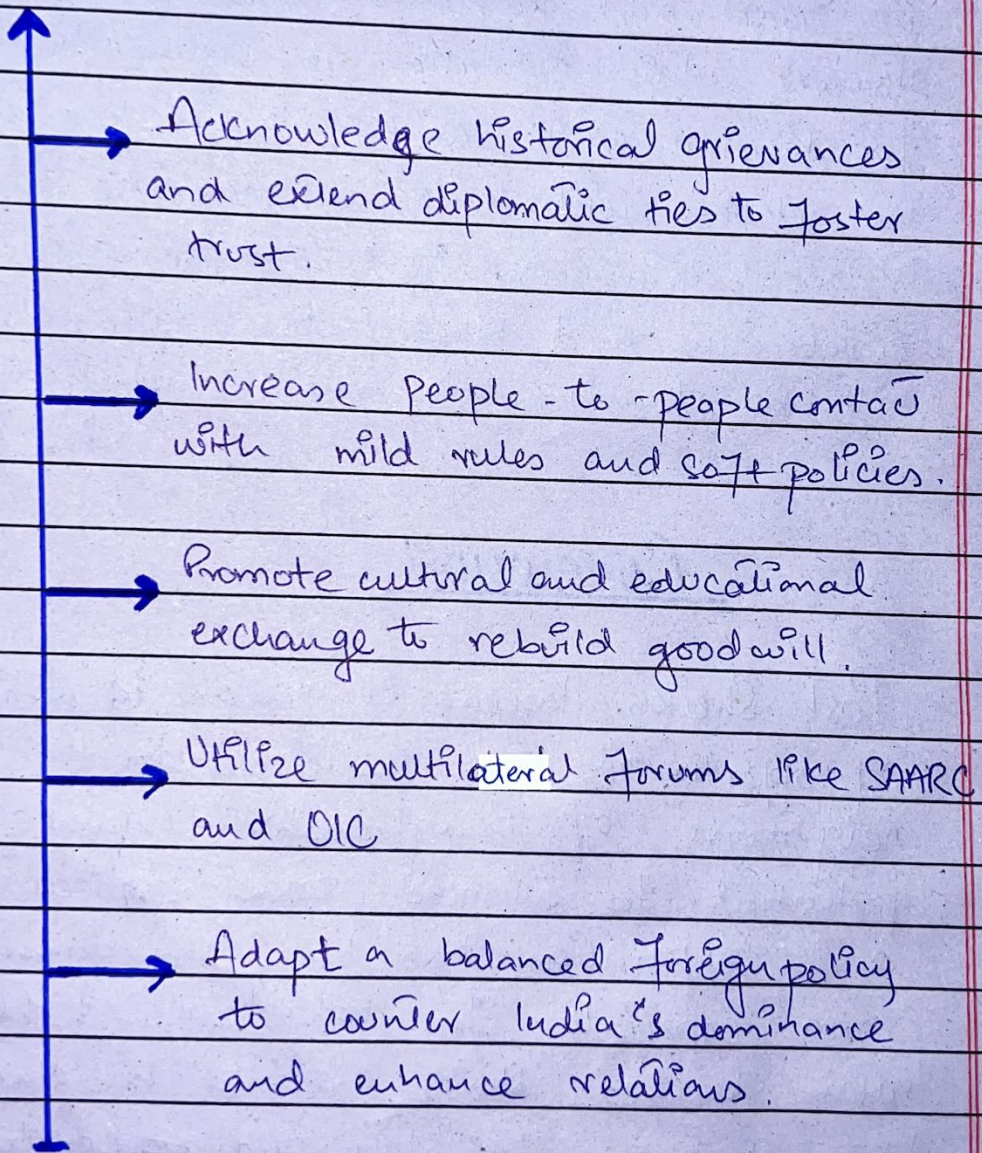 Acknowledge historical grievances
and extend diplomatic ties to foster
trust.
Increase People-to-people contact
with mild rules and soft policies.
Promote cultural and educational
exchange to rebuild goodwill.
Utilize multilateral forums like SAARC
and OIC
Adapt a balanced foreign policy
to counter India's dominance
and enhance relations.